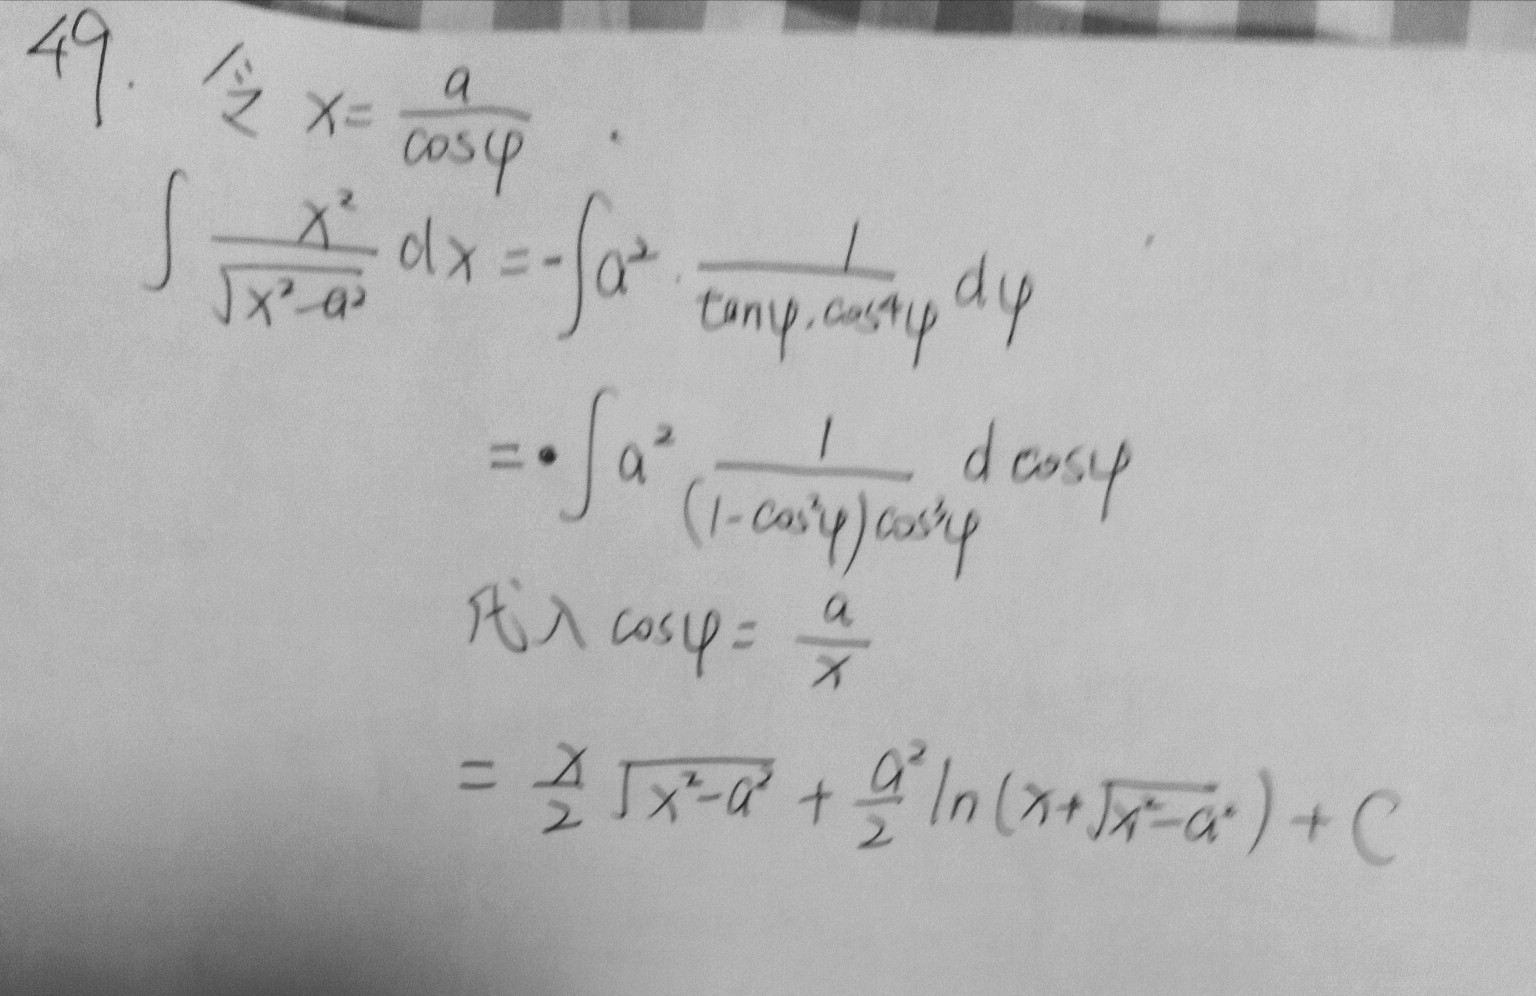 49. 令 x = a/cosφ .
∫ x²/√(x²-a²) dx = -∫ a² · 1/(tanφ·cos⁴φ) dφ
= ∫ a² · 1/((1-cos²φ)cos³φ) d cosφ
代入 cosφ = a/x
= x/2 √(x²-a²) + a²/2 ln(x+√(x²-a²)) + C